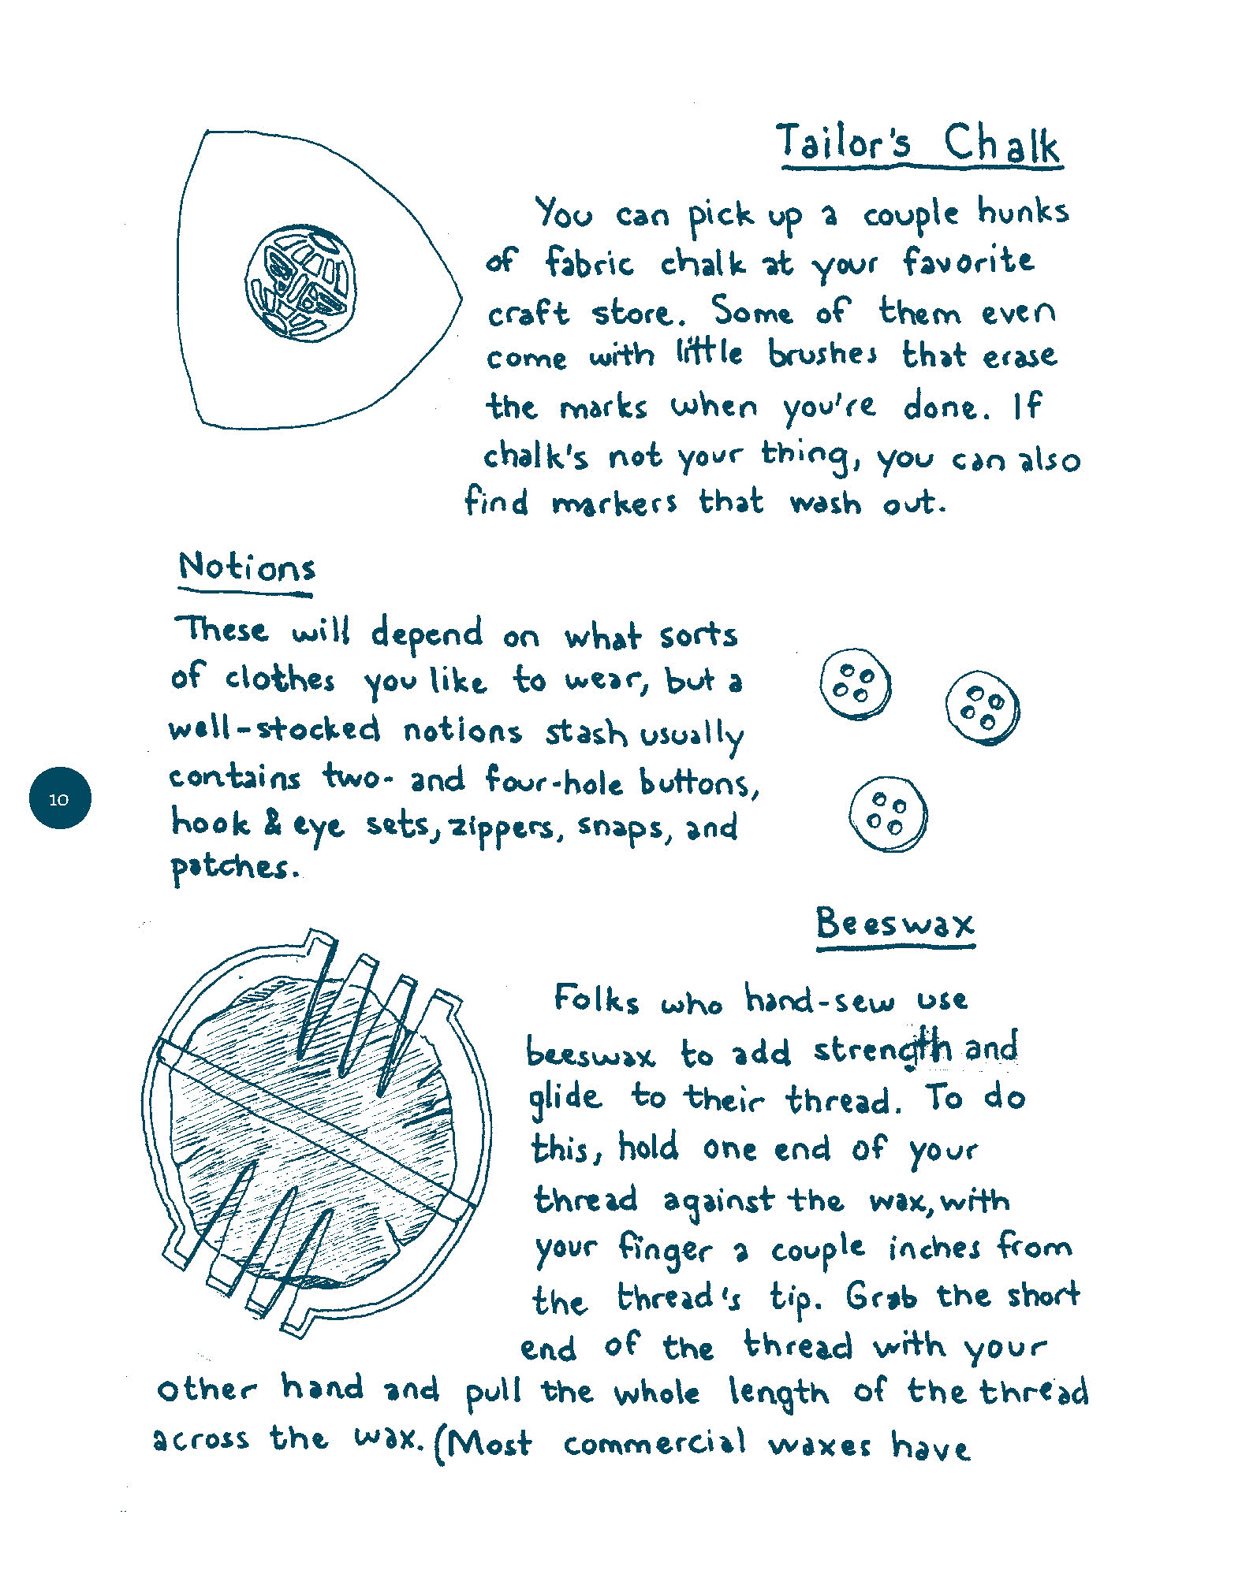 Tailor's Chalk
You can pick up a couple hunks
of fabric chalk at your favorite
craft store. Some of them even
come with little brushes that erase
the marks when you're done. If
chalk's not your thing, you can also
find markers that wash out.
Notions
These will depend on what sorts
of clothes you like to wear, but a
well-stocked notions stash usually
contains two- and four-hole buttons,
hook & eye sets, zippers, snaps, and
patches.
10
Beeswax
Folks who hand-sew use
beeswax to add strength and
glide to their thread. To do
this, hold one end of your
thread against the wax, with
your finger a couple inches from
the thread's tip. Grab the short
end of the thread with your
other hand and pull the whole length of the thread
across the wax. (Most commercial waxes have